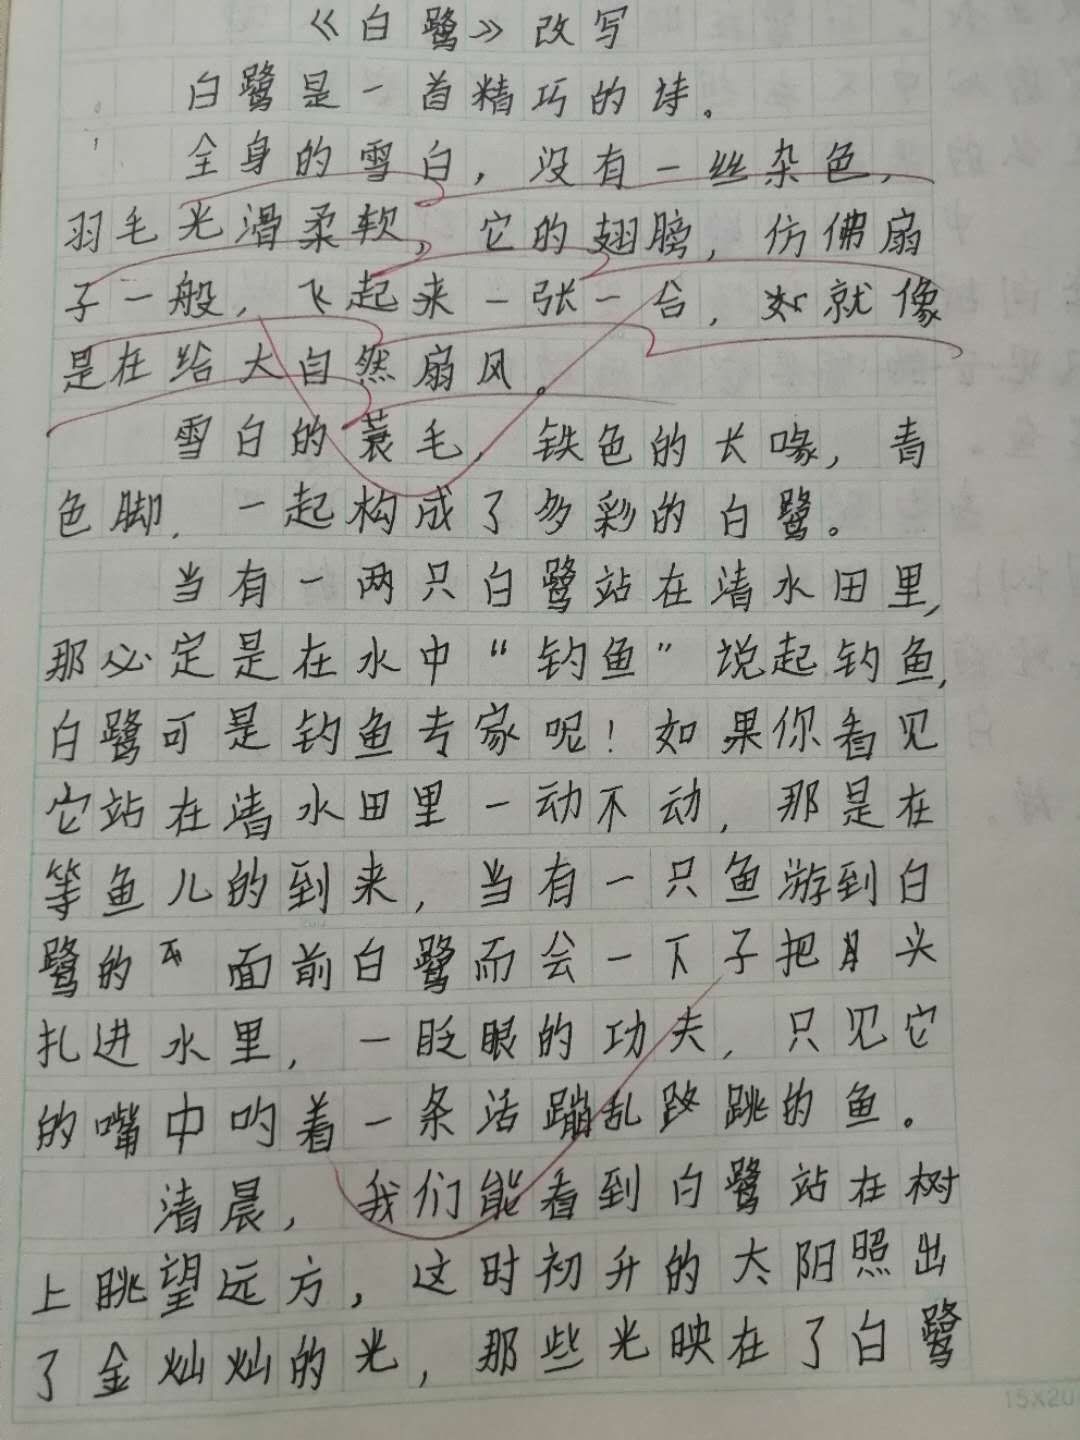 《白鹭》改写
白鹭是一首精巧的诗。
全身的雪白，没有一丝杂色，
羽毛光滑柔软，它的翅膀，仿佛扇
子一般，飞起来一张一合，如就像
是在给大自然扇风。
雪白的蓑毛，铁色的长喙，青
色脚，一起构成了多彩的白鹭。
当有一两只白鹭站在清水田里，
那必定是在水中“钓鱼”说起钓鱼，
白鹭可是钓鱼专家呢！如果你看见
它站在清水田里一动不动，那是在
等鱼儿的到来，当有一只鱼游到白
鹭的面前白鹭而会一下子把头
扎进水里，一眨眼的功夫，只见它
的嘴中叼着一条活蹦乱跳的鱼。
清晨，我们能看到白鹭站在树
上眺望远方，这时初升的太阳照出
了金灿灿的光，那些光映在了白鹭
15X20